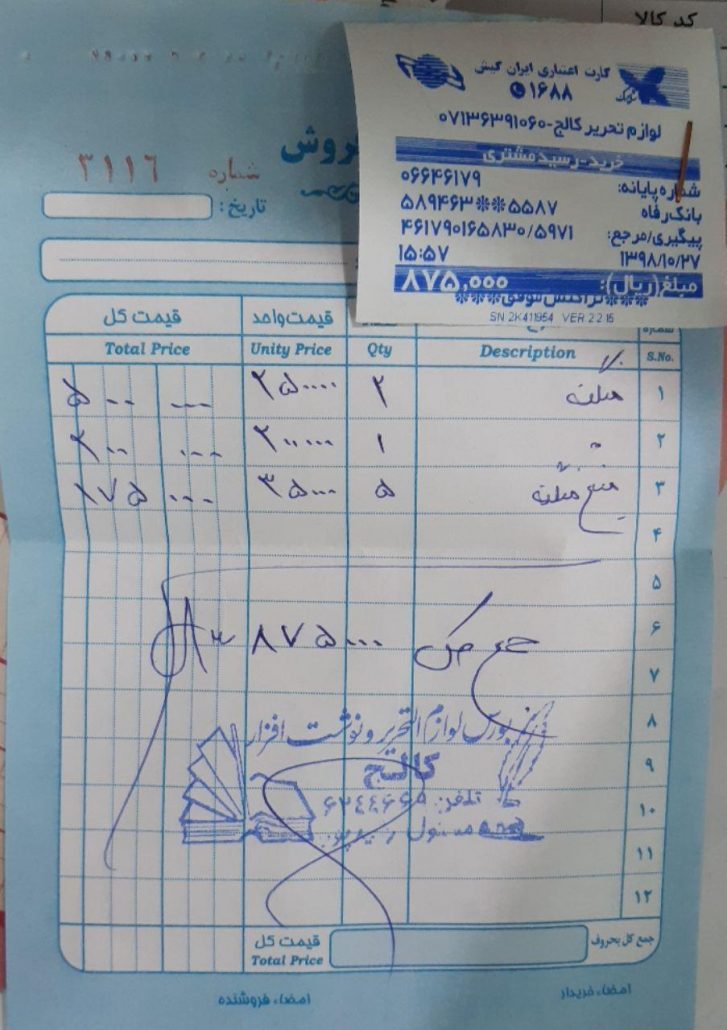 کد کالا
کارت اعتباری ایران کیش
۱۶۸۸
لوازم تحریر کالج-۰۷۱۳۶۳۹۱۰۶۰
خرید-رسید مشتری
شماره پایانه: ۰۶۶۴۶۱۷۹
بانک رفاه ۵۸۹۴۶۳**۵۵۸۷
پیگیری/مرجع: ۴۶۱۷۹۰۱۶۵۸۳۰/۵۹۷۱
۱۳۹۸/۱۰/۲۷ ۱۵:۵۷
مبلغ(ریال): ۸۷۵,۰۰۰
***تراکنش موفق***
SN 2K411954 VER 2.2.16
فروش
شماره ۳۱۱۶
تاریخ:
قیمت واحد قیمت کل
S.No. Description Qty Unity Price Total Price
۱ ۲ ۲۵۰۰۰۰ ۵۰۰ ۰۰۰
۲ ۱ ۲۰۰۰۰۰ ۲۰۰ ۰۰۰
۳ ۵ ۳۵۰۰۰ ۱۷۵ ۰۰۰
۴
۵
۶
جمع کل ۸۷۵۰۰۰
۷
۸
بورس لوازم التحریر و نوشت افزار
۹
کالج
۱۰
تلفن:
مسئول
۱۱
۱۲
جمع کل بحروف قیمت کل
Total Price
امضاء خریدار امضاء فروشنده